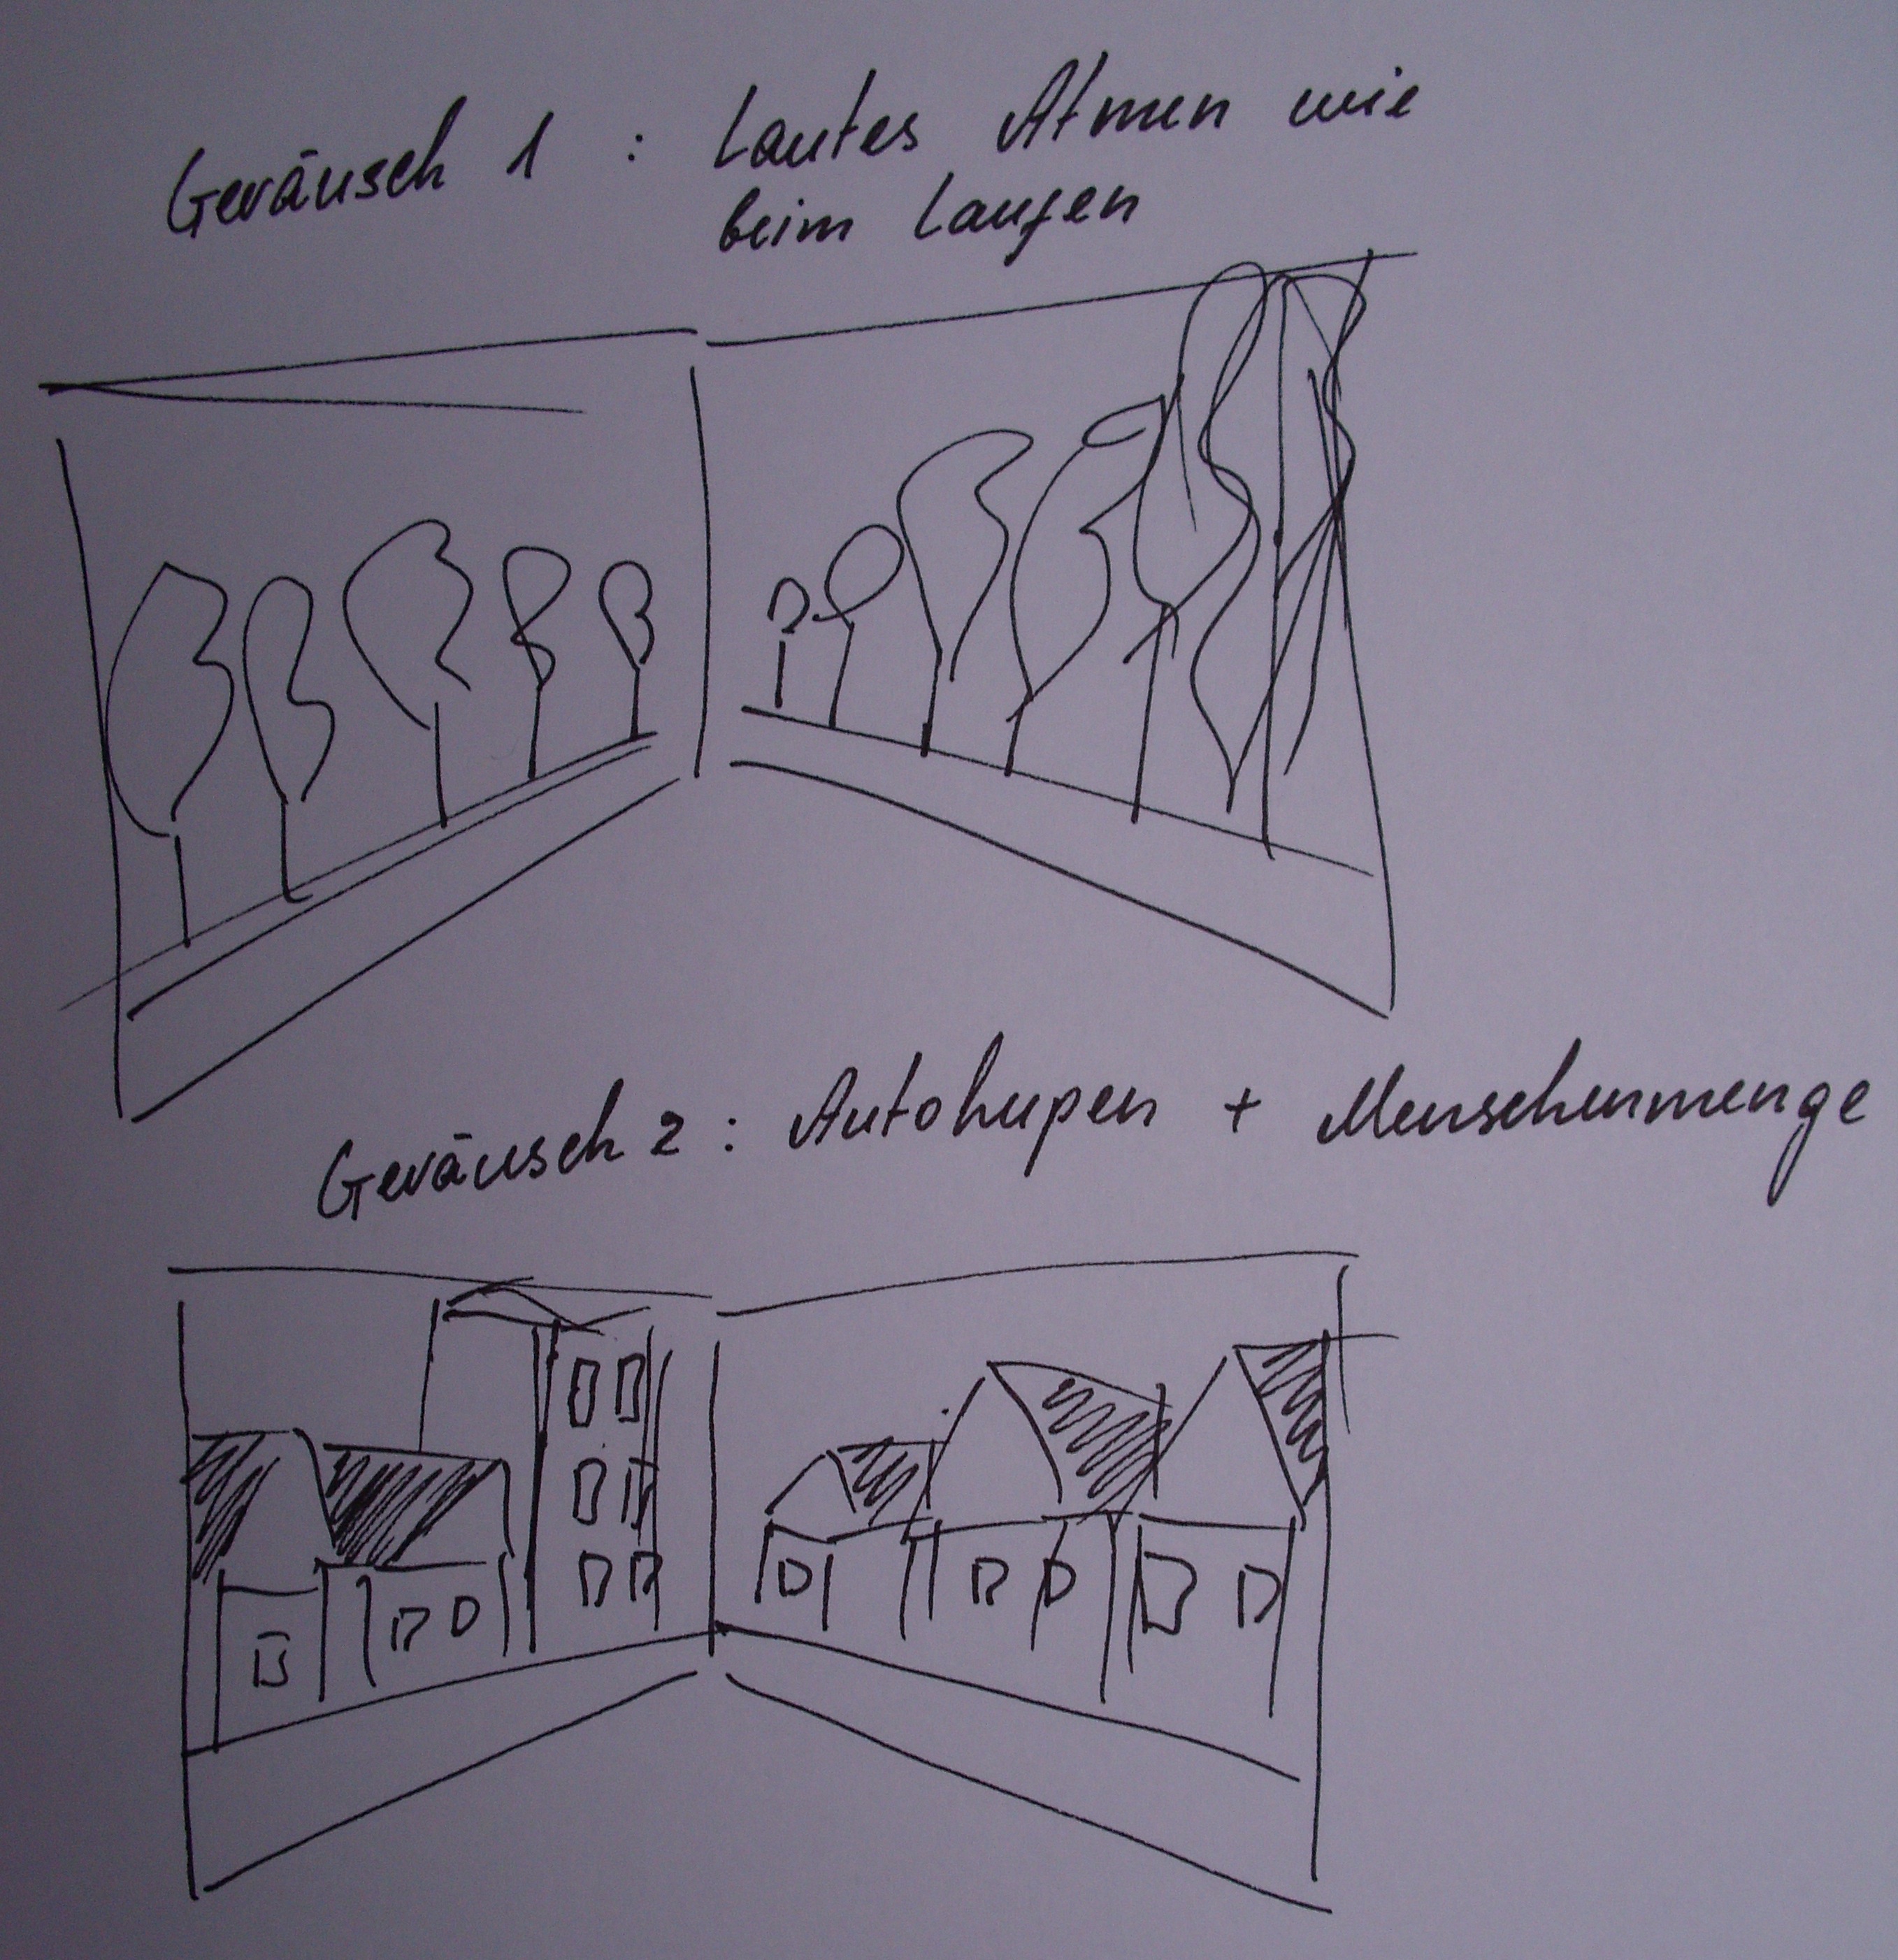 Geräusch 1 : Lautes Atmen wie
beim Laufen
Geräusch 2 : Autohupen + Menschenmenge